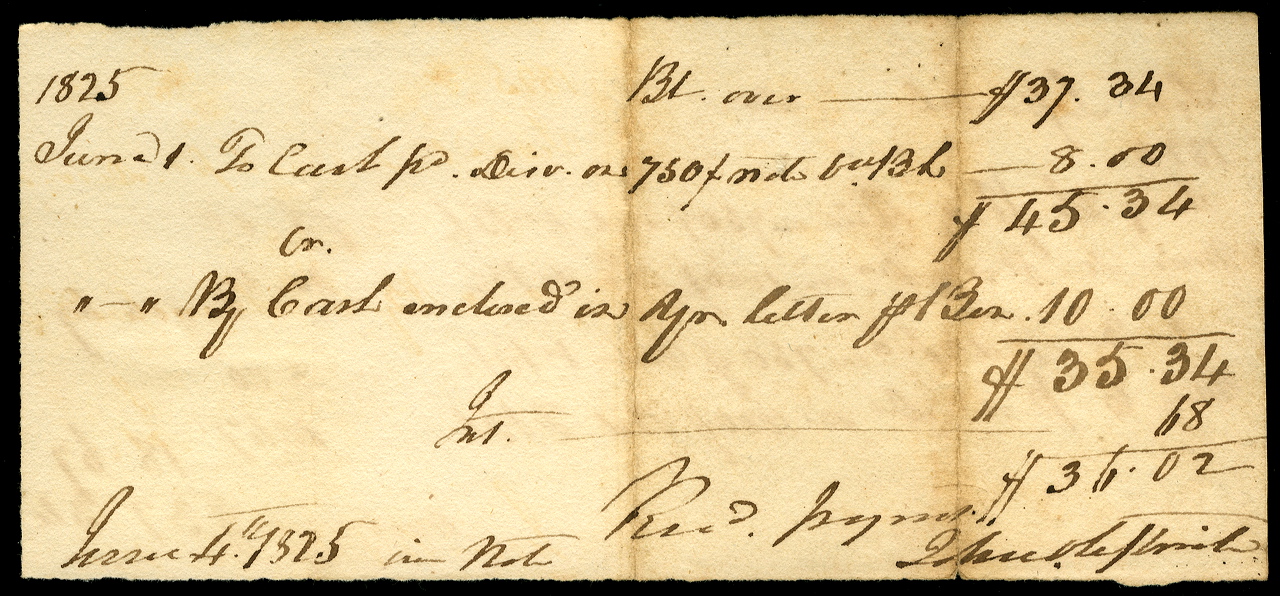 1825 Bt. over — $37.34
June 1. To Cash pd. Disc. on 750$ note 8.00
$45.34
Cr.
"—" By Cash enclosed in Yr. letter 10.00
$35.34
Int. — 68
$36.02
Recd. paymt.
June 4th 1825 in Note